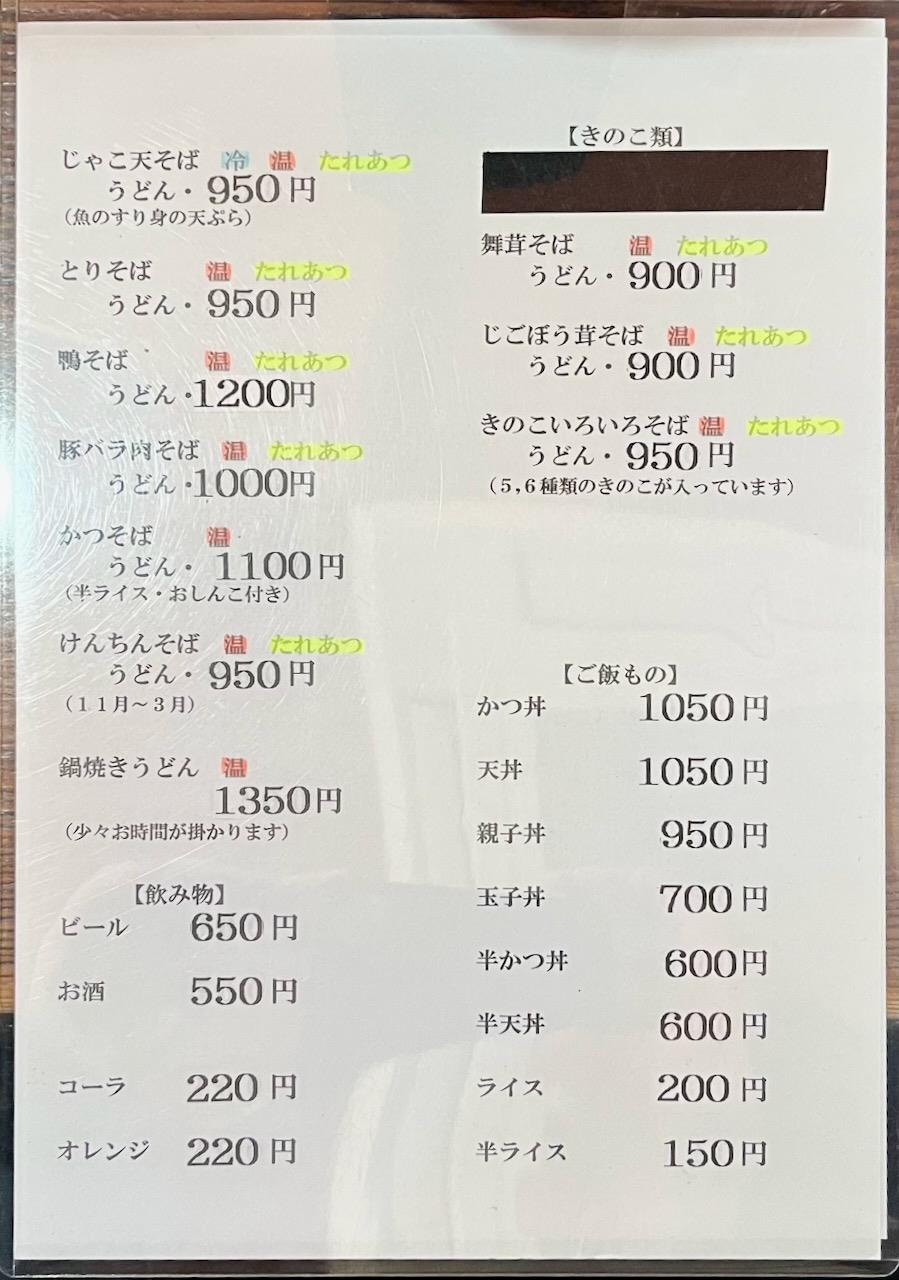 じゃこ天そば 冷 温 たれあつ
うどん・950円
（魚のすり身の天ぷら）
とりそば 温 たれあつ
うどん・950円
鴨そば 温 たれあつ
うどん・1200円
豚バラ肉そば 温 たれあつ
うどん・1000円
かつそば 温
うどん・1100円
（半ライス・おしんこ付き）
けんちんそば 温 たれあつ
うどん・950円
（１１月～３月）
鍋焼きうどん 温
1350円
（少々お時間が掛かります）
【飲み物】
ビール 650円
お酒 550円
コーラ 220円
オレンジ 220円
【きのこ類】
舞茸そば 温 たれあつ
うどん・900円
じごぼう茸そば 温 たれあつ
うどん・900円
きのこいろいろそば 温 たれあつ
うどん・950円
（５,６種類のきのこが入っています）
【ご飯もの】
かつ丼 1050円
天丼 1050円
親子丼 950円
玉子丼 700円
半かつ丼 600円
半天丼 600円
ライス 200円
半ライス 150円